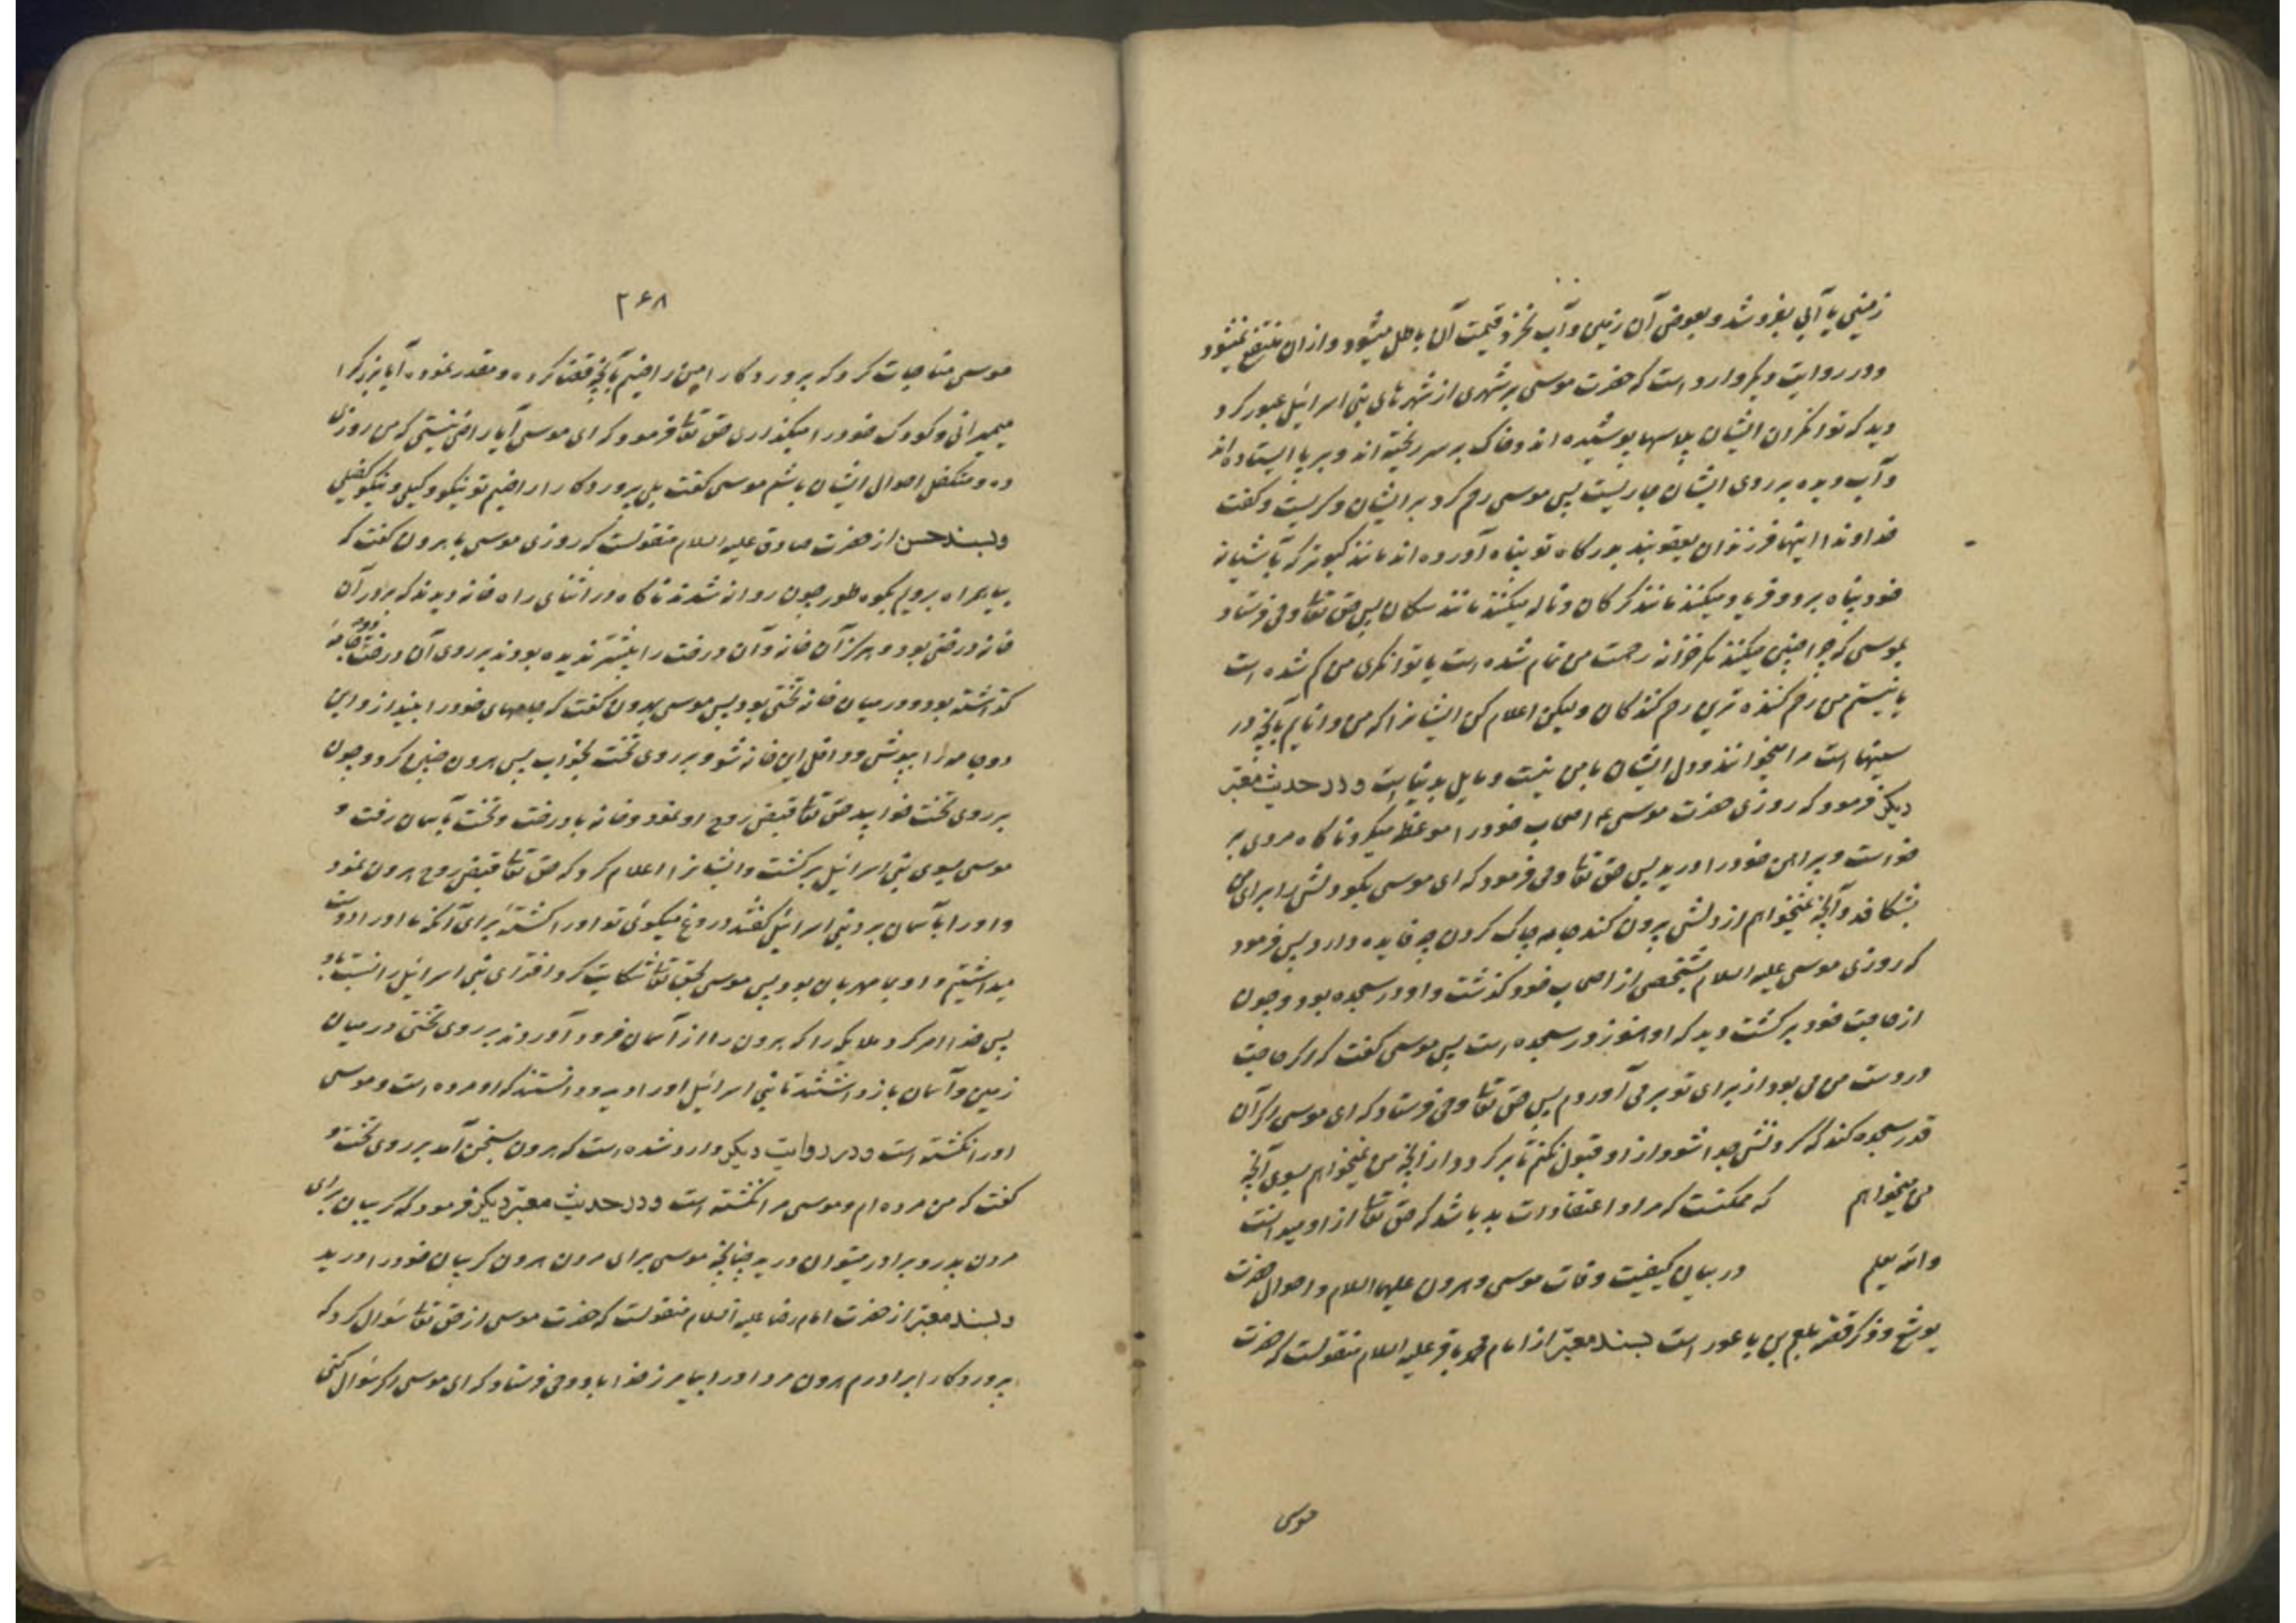 زمینی یا آبی بفروشد و بعوض آن زمین و آب نخرد قیمت آن باطل میشود و ازان منتفع نمیشود
و در روایت دیگر وارد است که حضرت موسی بر شهری از شهرهای بنی اسرائیل عبور کرد
دید که توانگران ایشان پلاسها پوشیده اند و خاک بر سر ریخته اند و بر پا ایستاده اند
و آب دیده بر روی ایشان جاریست پس موسی رحم کرد بر ایشان و گریست و گفت
خداوندا اینها فرزندان یعقوبند بدرگاه تو پناه آورده اند مانند کبوتر که بآشیانه
خود پناه برد و فریاد میکنند مانند گرگان و ناله میکنند مانند سگان پس حق تعا وحی فرستاد
بموسی که چرا چنین میکنند مگر خزانه رحمت من تمام شده است یا توانگری من کم شده است
یا نیستم من رحم کننده ترین رحم کنندگان ولیکن اعلام کن ایشانرا که من دانایم بآنچه در
سینهاست مرا میخوانند و دل ایشان با من نیست و مایل بدنیاست و در حدیث معتبر
دیگر فرمود که روزی حضرت موسی ع اصحاب خود را موعظه میکرد ناگاه مردی بر
خواست و پیراهن خود را درید پس حق تعا وحی فرمود که ای موسی بگو دلش را برای من
بشکافد و آنچه نمیخواهم از دلش بیرون کند جامه چاک کردن چه فایده دارد پس فرمود
که روزی موسی علیه السلام بشخصی از اصحاب خود گذشت و او در سجده بود و چون
از حاجت خود برگشت دید که او هنوز در سجده است پس موسی گفت که اگر حاجت
در دست من می بود از برای تو بر می آوردم پس حق تعا وحی فرستاد که ای موسی اگر آن
قدر سجده کند که گردنش جدا شود از او قبول نکنم تا برگردد از آنچه من نمیخواهم بسوی آنچه
من میخواهم که ممکنست که مراد اعتقادات بد باشد که حق تعا از او میدانست
والله یعلم در بیان کیفیت وفات موسی و هرون علیهما السلام و احوال حضرت
یوشع و ذکر قصه بلعم بن باعور است بسند معتبر از امام محمد باقر علیه السلام منقولست که حضرت
موسی
۲۶۸
موسی مناجات کرد که پروردگارا من راضیم بآنچه قضا کرده و مقدر نموده آیا بزرگ را
میمیرانی و کودک خورد را میگذاری حق تعا فرمود که ای موسی آیا راضی نیستی که من روزی
ده و متکفل احوال ایشان باشم موسی گفت بلی پروردگارا راضیم تو نیکو وکیلی و نیکو کفیلی
و بسند حسن از حضرت صادق علیه السلام منقولست که روزی موسی با هرون گفت که
بیا همراه برویم بکوه طور چون روانه شدند ناگاه در اثنای راه خانه دیدند که بر در آن
خانه درختی بود و هرگز آن خانه و آن درخت را پیشتر ندیده بودند بر روی آن درخت دو جامه
گذاشته بود و در میان خانه تختی بود پس موسی بهرون گفت که جامهای خود را بینداز و این
دو جامه را بپوش و داخل این خانه شو و بر روی تخت بخواب پس هرون چنین کرد و چون
بر روی تخت خوابید حق تعا قبض روح او نمود و خانه با درخت و تخت بآسمان رفت و
موسی بسوی بنی اسرائیل برگشت و ایشانرا اعلام کرد که حق تعا قبض روح هرون نمود
و او را بآسمان برد بنی اسرائیل گفتند دروغ میگوئی تو او را کشته برای آنکه ما او را دوست
میداشتیم و او با ما مهربان بود پس موسی بحق تعا شکایت کرد افترای بنی اسرائیل را نسبت باو
پس خدا امر کرد ملایکه را که هرون را از آسمان فرود آوردند بر روی تختی در میان
زمین و آسمان بازداشتند تا بنی اسرائیل او را دیدند و دانستند که او مرده است و موسی
او را نکشته است و در روایت دیگر وارد شده است که هرون بسخن آمد بر روی تخت و
گفت که من مرده ام و موسی مرا نکشته است و در حدیث معتبر دیگر فرمود که گریبان برای
مردن پدر و برادر میتوان درید چنانچه موسی برای مردن هرون گریبان خود را درید
و بسند معتبر از حضرت امام رضا علیه السلام منقولست که حضرت موسی از حق تعا سؤال کرد که
پروردگارا برادرم هرون مرد او را بیامرز خدا باو وحی فرستاد که ای موسی اگر سؤال کنی